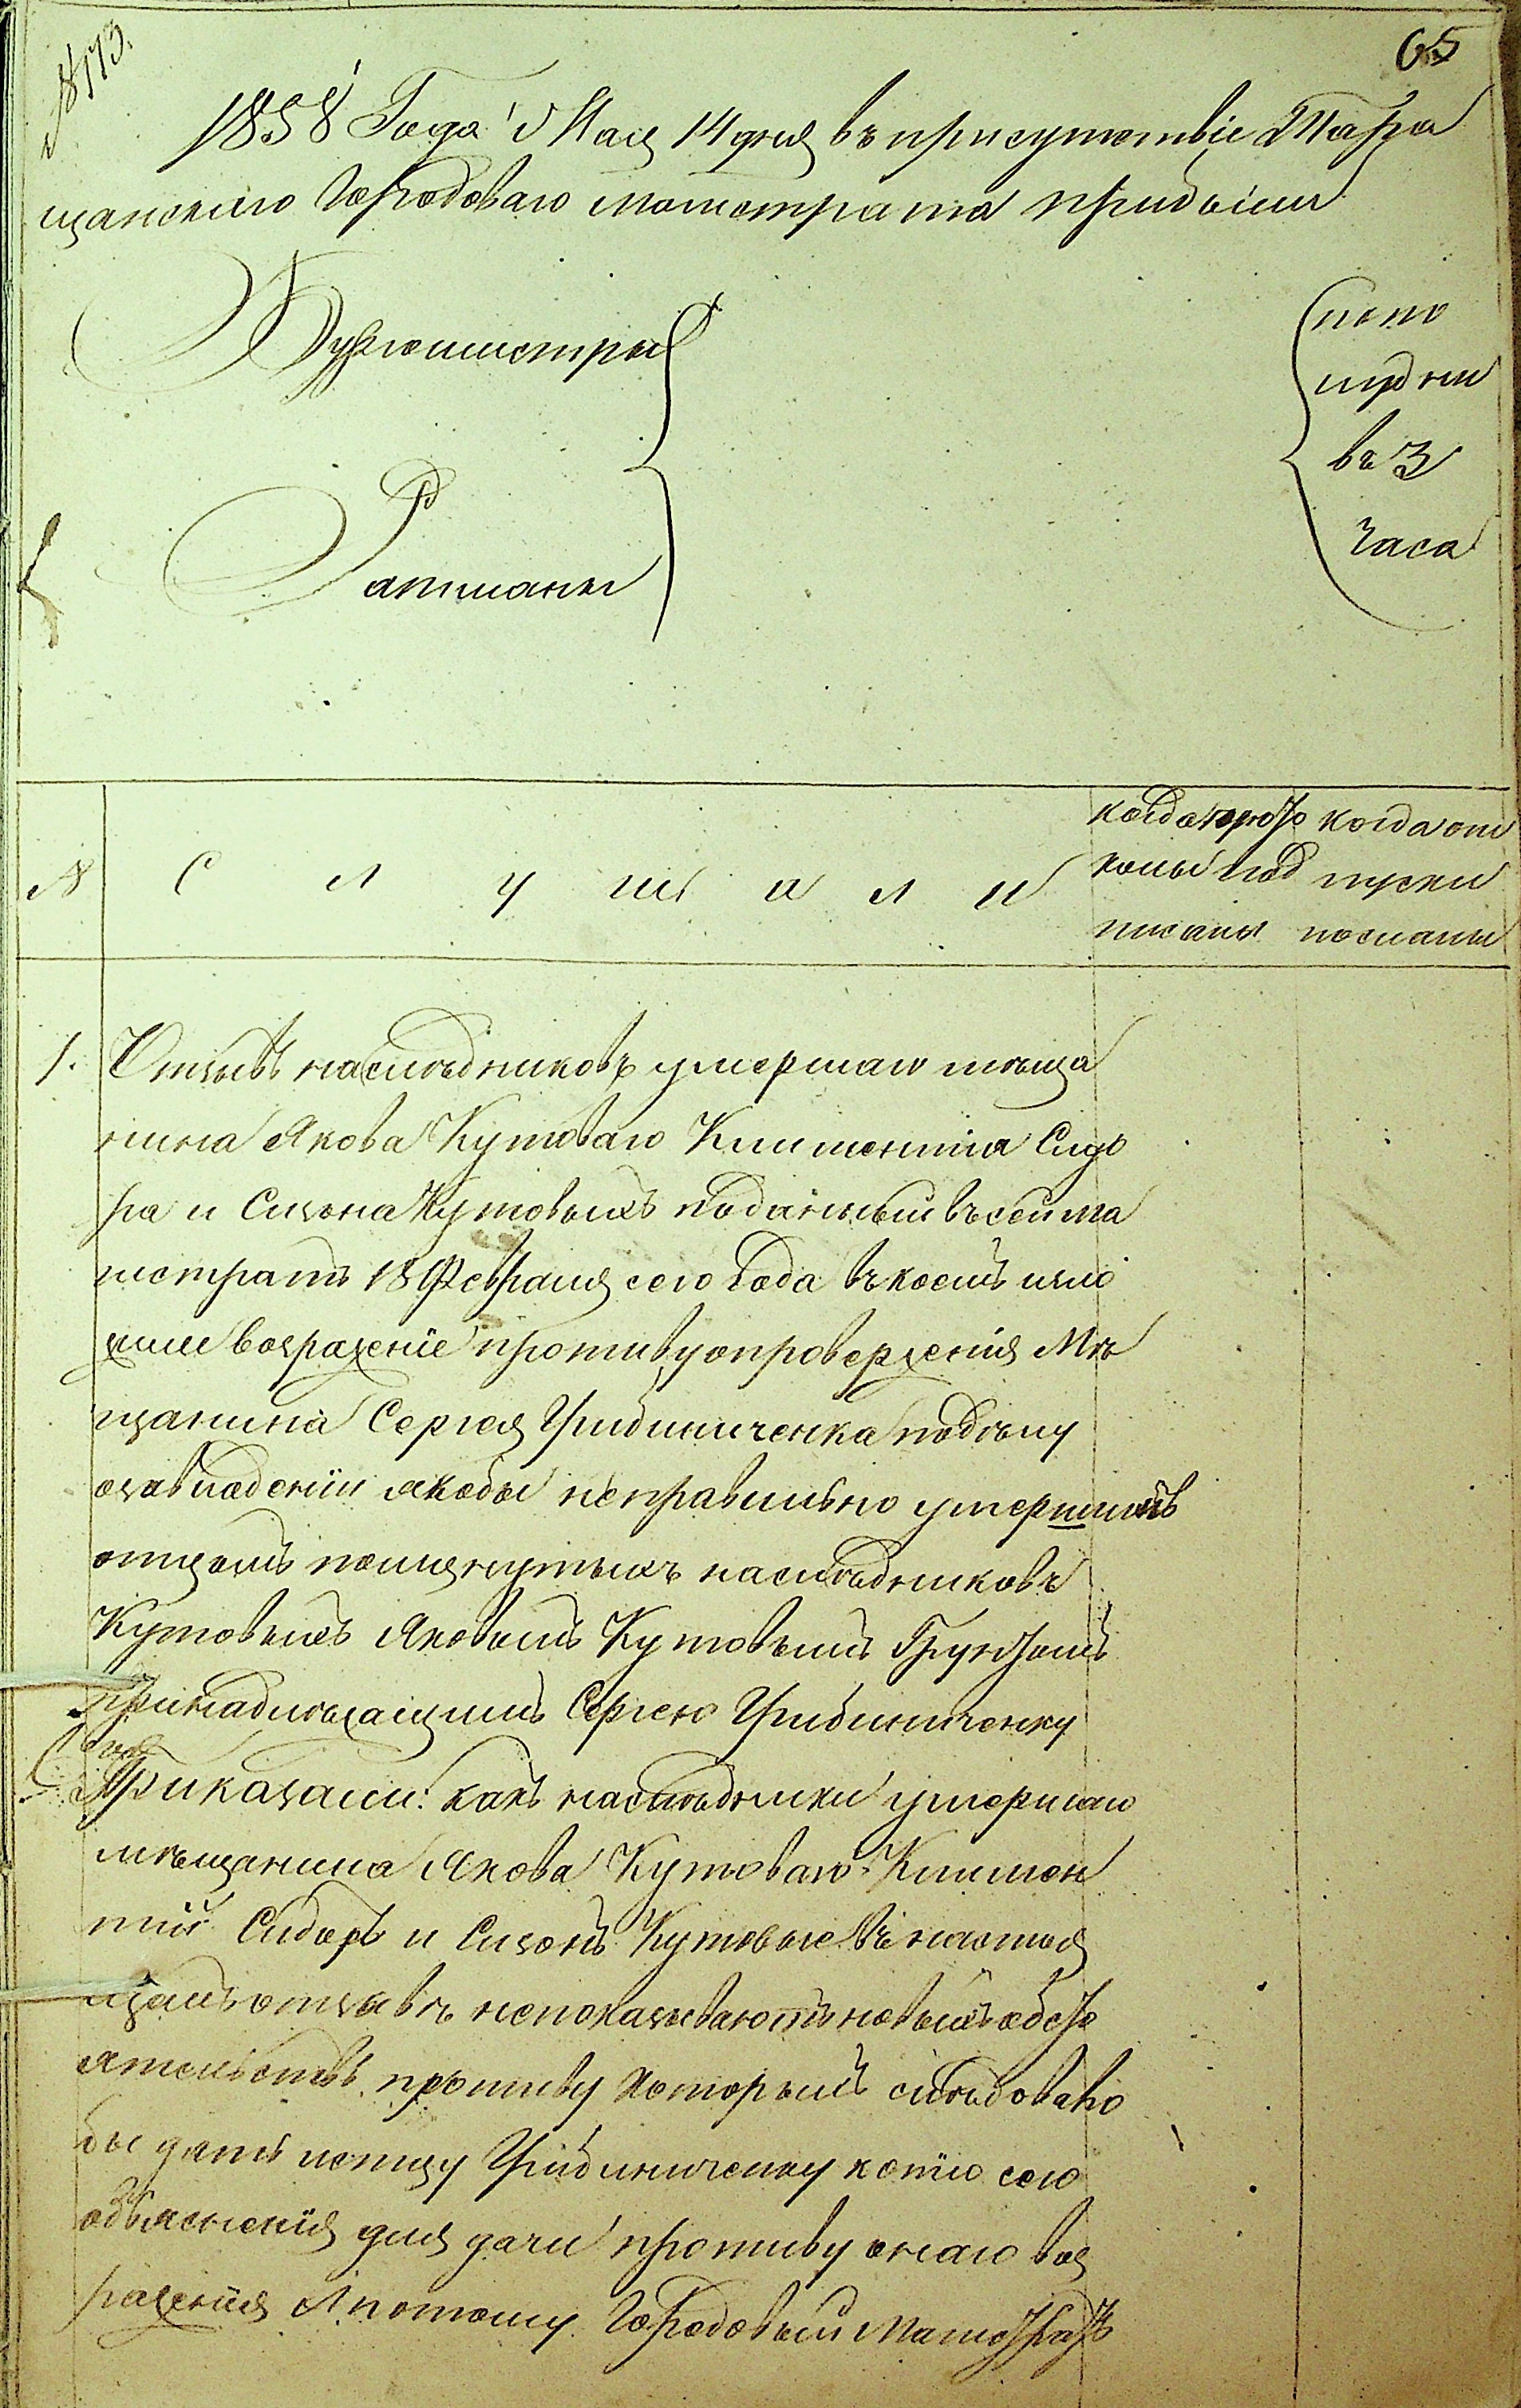 № 173.
65
1858 Года Мая 14 дня въ присутствіе Тара
щанскаго Городоваго магистрата прибыли
Бургомистры
Ратманы
попо
лудни
въ 3
часа
№ С л у ш а л и
когда прото
колы под
писаны
когда от
пуски
посланы
1. Отзывъ наслѣдниковъ умершаго мѣща
нина Якова Кутоваго Климентія Сидо
ра и Сизона Кутовыхъ поданный въ сей ма
гистратъ 18 Февраля сего Года въ коемъ изло
жили возраженіе противу опроверженія Мѣ
щанина Сергея Грибиниченка по дѣлу
о завладеніи якобы неправильно умершимъ
отцомъ помянутыхъ наслѣдниковъ
Кутовыхъ Яковымъ Кутовымъ Грунтомъ
принадлежащимъ Сергею Грибиниченку
Приказали: какъ наслѣдники умершаго
мѣщанина Якова Кутоваго Климен
тій Сидоръ и Сизонъ Кутовые въ настоя
щемъ отзывѣ непоказываютъ новыхъ обсто
ятельствъ противу которыхъ слѣдовало
бы дать истцу Грибиниченку копію сего
объясненія для дачи противу онаго воз
раженія А потому Городовый Магистратъ